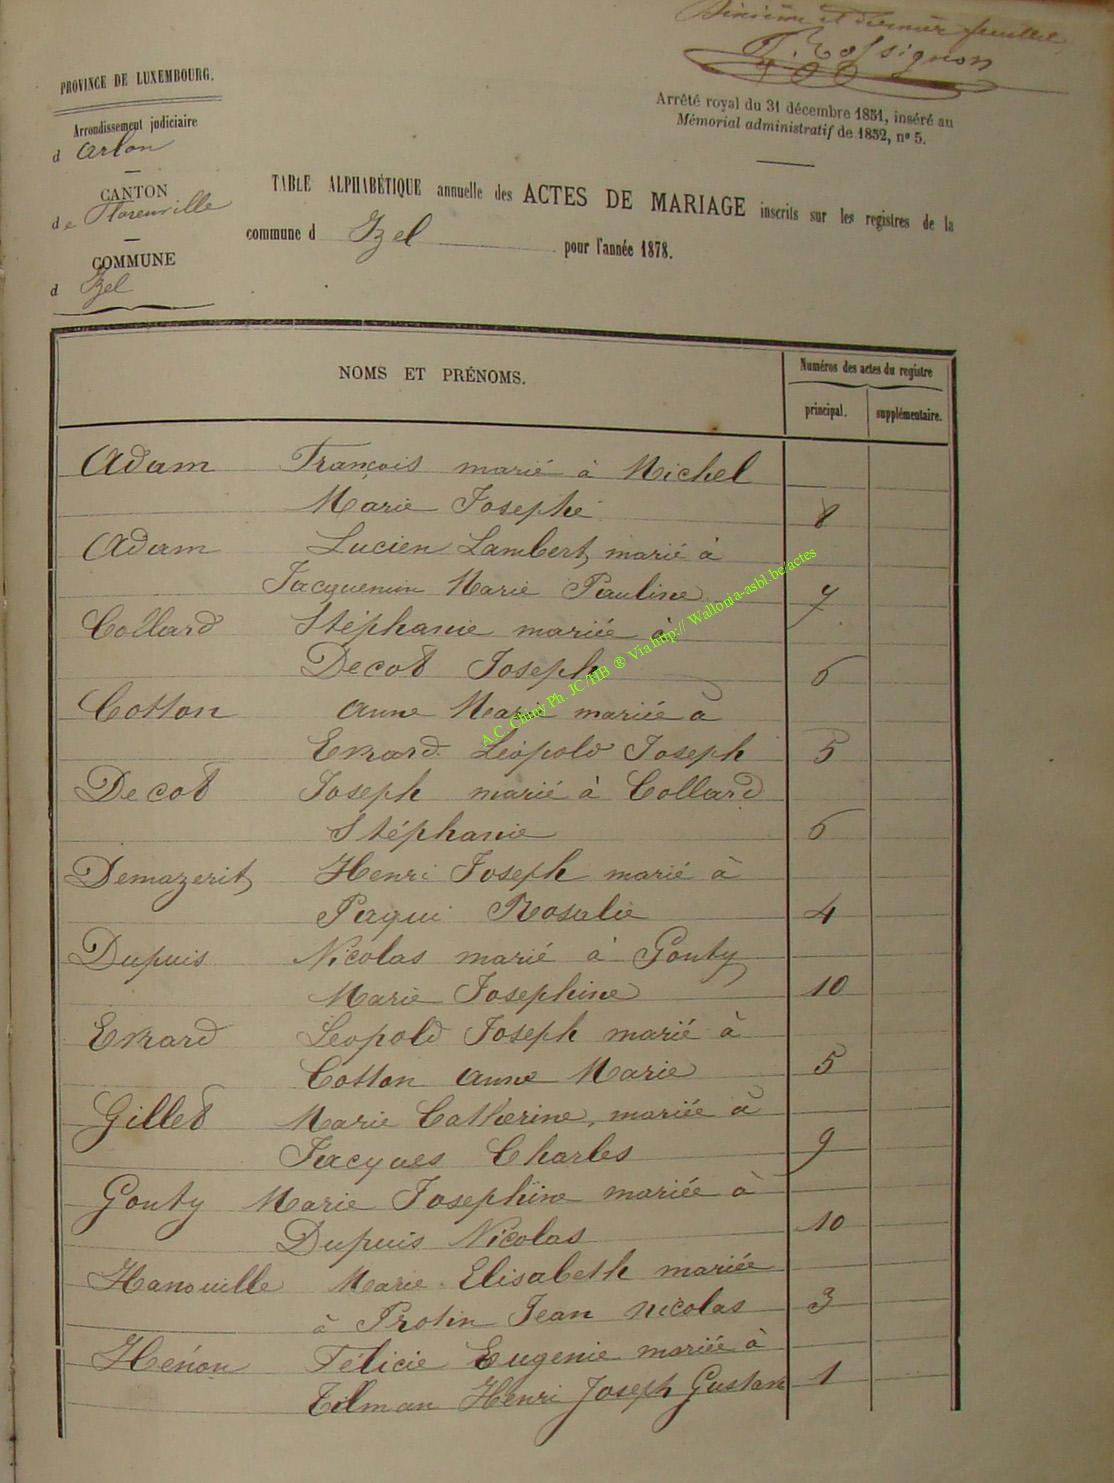 Sixième et dernier feuillet
T. Rossignon
PROVINCE DE LUXEMBOURG.
Arrondissement judiciaire
d Arlon
CANTON
de Florenville
COMMUNE
d Izel
Arrêté royal du 31 décembre 1851, inséré au
Mémorial administratif de 1852, nº 5.
TABLE ALPHABÉTIQUE annuelle des ACTES DE MARIAGE inscrits sur les registres de la
commune d Izel pour l'année 1878.
NOMS ET PRÉNOMS.
Numéros des actes du registre
principal. supplémentaire.
Adam François marié à Michel
Marie Josephe 8
Adam Lucien Lambert, marié à
Jacquemin Marie Pauline 7
Collard Stéphanie mariée à
Decot Joseph 6
Cotton Anne Marie mariée à
Evrard Léopold Joseph 5
Decot Joseph marié à Collard
Stéphanie 6
Demazerit Henri Joseph marié à
Perqui Rosalie 4
Dupuis Nicolas marié à Gouty
Marie Josephine 10
Evrard Leopold Joseph marié à
Cotton Anne Marie 5
Gillet Marie Catherine, mariée à
Jacques Charles 9
Gouty Marie Josephine mariée à
Dupuis Nicolas 10
Hanouille Marie Elisabeth mariée
à Protin Jean Nicolas 3
Hénon Félicie Eugenie mariée à
Tilman Henri Joseph Gustave 1
A.C. Chiny Ph. JC/HB ® Via http:// Wallonia-asbl.be/actes